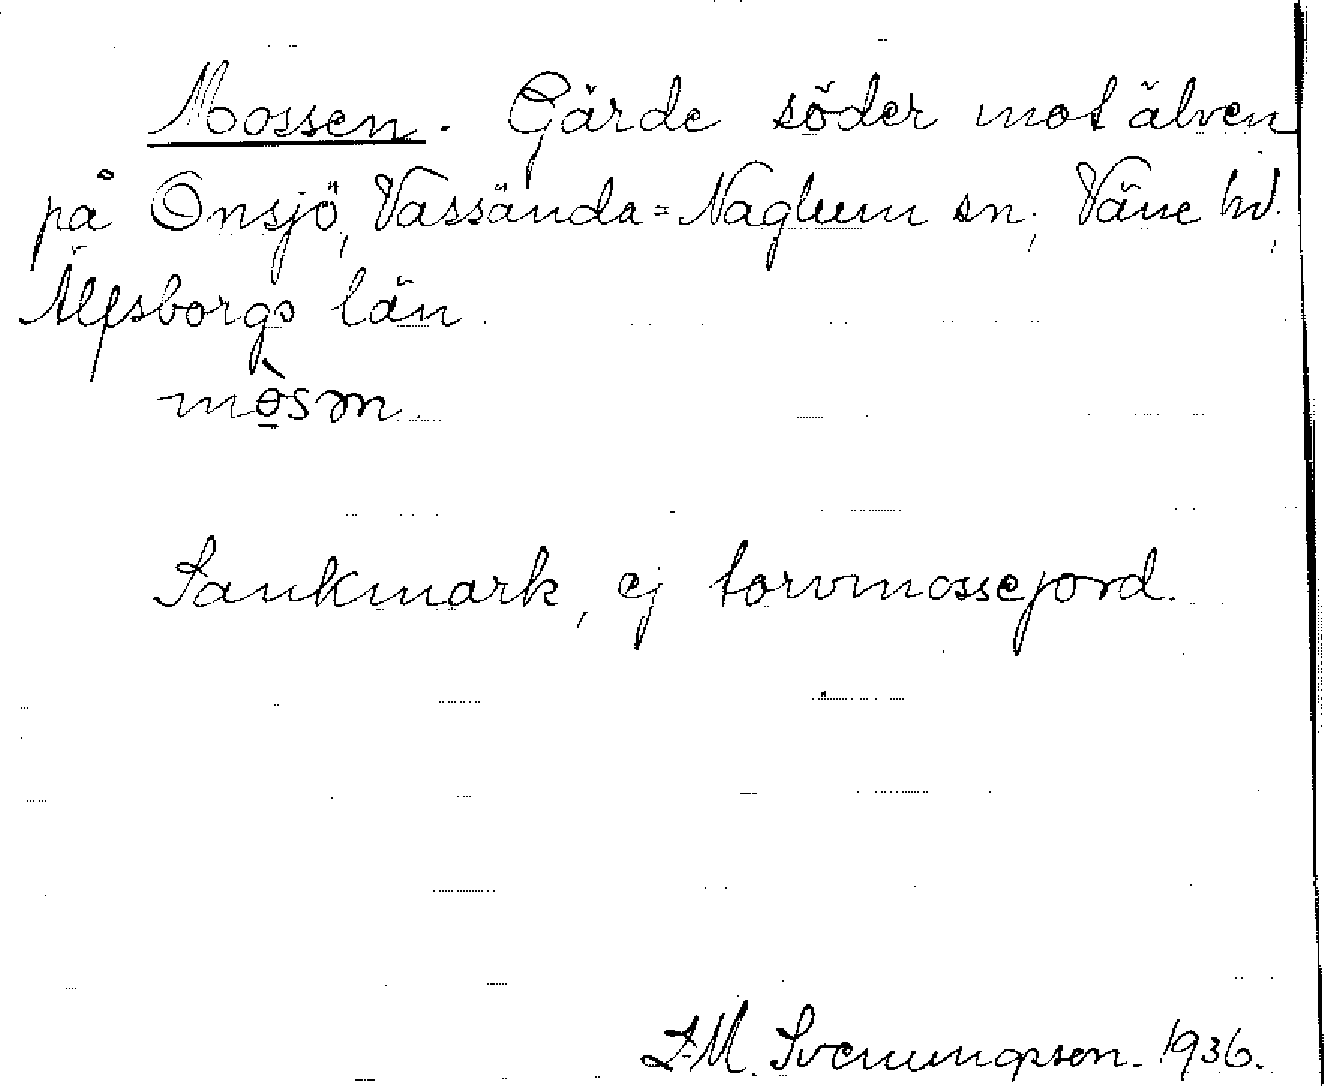 Mossen. Gärde söder mot älven
på Onsjö, Vassända=Naglum sn, Väne hd,
Älfsborgs län.
mòsən.
Sankmark, ej torvmossejord.
Svenungsson. 1936.